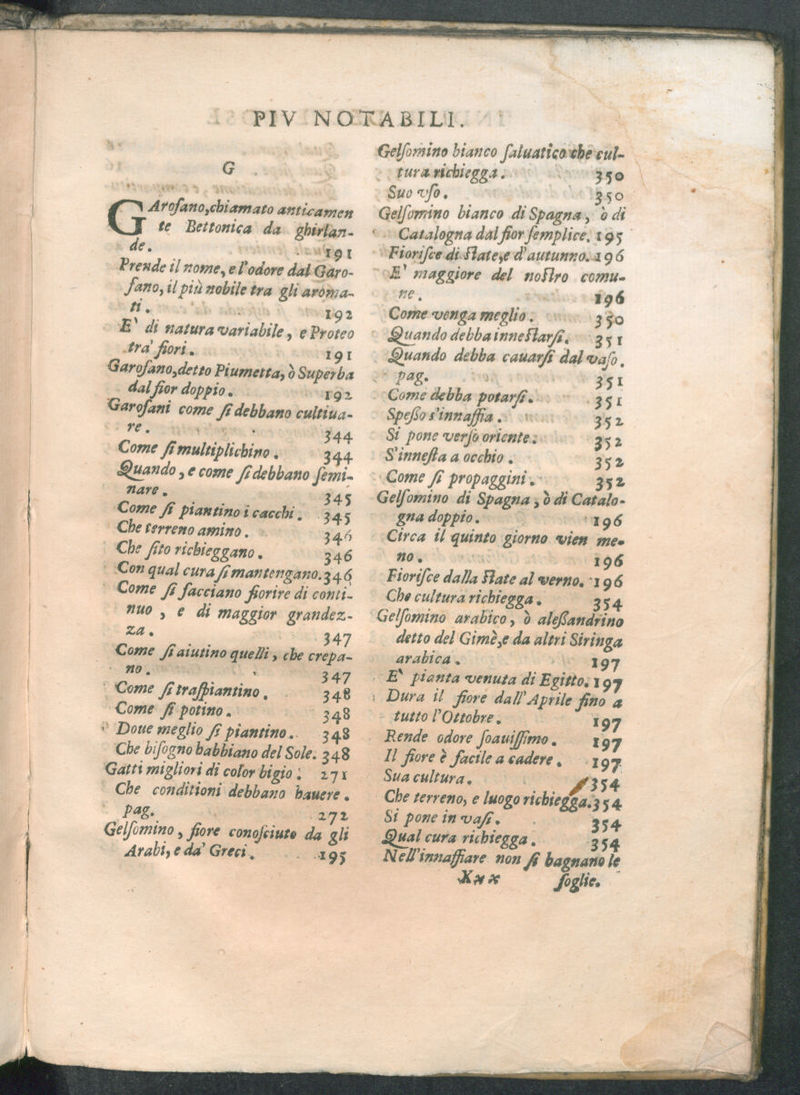 PIV NOTABILI.
G
GArofano,chiamato anticamen
te Bettonica da ghirlan-
de. 191
Prende il nome, e l'odore dal Garo-
fano, il più nobile tra gli aroma-
ti. 192
E' di natura variabile, e Proteo
tra' fiori. 191
Garofano,detto Piumetta, ò Superba
dal fior doppio. 192
Garofani come ſi debbano cultiua-
re. 344
Come ſi multiplichino. 344
Quando, e come ſi debbano ſemi-
nare. 345
Come ſi piantino i cacchi. 345
Che terreno amino. 346
Che ſito richieggano. 346
Con qual cura ſi mantengano.346
Come ſi facciano fiorire di conti-
nuo, e di maggior grandez-
za. 347
Come ſi aiutino quelli, che crepa-
no. 347
Come ſi traſpiantino. 348
Come ſi potino. 348
Doue meglio ſi piantino. 348
Che biſogno habbiano del Sole. 348
Gatti migliori di color bigio. 271
Che conditioni debbano hauere.
pag. 272
Gelſomino, fiore conoſciuto da gli
Arabi, e da' Greci. 195
Gelſomino bianco ſaluatico che cul-
tura richiegga. 350
Suo vſo. 350
Gelſomino bianco di Spagna, ò di
Catalogna dal fior ſemplice. 195
Fioriſce di ſtate,e d'autunno. 196
E' maggiore del noſtro comu-
ne. 196
Come venga meglio. 350
Quando debba inneſtarſi. 351
Quando debba cauarſi dal vaſo.
pag. 351
Come debba potarſi. 351
Speſſo s'innaffia. 352
Si pone verſo oriente. 352
S'inneſta a occhio. 352
Come ſi propaggini. 352
Gelſomino di Spagna, ò di Catalo-
gna doppio. 196
Circa il quinto giorno vien me-
no. 196
Fioriſce dalla ſtate al verno. 196
Che cultura richiegga. 354
Gelſomino arabico, ò aleſſandrino
detto del Gimè,e da altri Siringa
arabica. 197
E' pianta venuta di Egitto. 197
Dura il fiore dall'Aprile fino a
tutto l'Ottobre. 197
Rende odore ſoauiſſimo. 197
Il fiore è facile a cadere. 197
Sua cultura. 354
Che terreno, e luogo richiegga.354
Si pone in vaſi. 354
Qual cura richiegga. 354
Nell'innaffiare non ſi bagnano le
Xxx foglie.